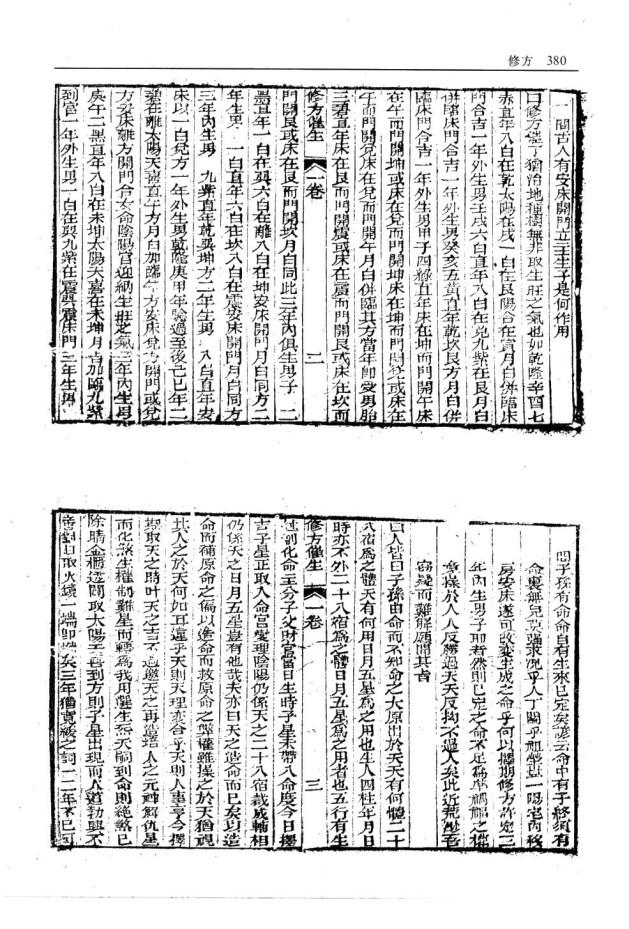 修方 380
一問古人有安床開門立主生子是何作用
曰修方催丁猶治地種樹無非取生旺之氣也如乾隆辛酉七
赤直年八白在乾太陽在戌一白在艮陽合在寅月白併臨床
門合吉一年外生男壬戌六白直年八白在兌九紫在艮月白
併臨床門合吉一年外生男癸亥五黃直年乾坎艮方月白併
臨床門合吉一年外生男甲子四綠直年床在坤而門開午床
在午而門開坤或床在兌而門開坤床在坤而門開兌或床在
午而門開兌床在兌而門開午月白併臨其方當年即受男胎
三碧直年床在艮而門開震或床在震而門開艮或床在坎而
門開艮或床在艮而門開坎月白同此三年內俱生男子 二
修方催生 一卷 二
黑直年一白在巽六白在離八白在坤安床開門月白同方二
年生男 一白直年六白在坎八白在震安床開門月白同方
三年內生男 九紫直年乾巽坤方二年生男 八白直年安
床以一白兌方一年外生男乾隆庚申年驗過至後己巳年二
碧在離太陽天喜直午方月白加臨午方安床兌方開門或兌
方安床離方開門合女命陰陽官迎納生旺之氣三年內生男
庚午二黑直年八白在未坤太陽天喜在未坤月吉加臨九紫
到官一年外生男一白在巽九紫在震巽震床門三年生男
問子孫有命命自有生來已定矣諺云命中有子終須有
命裏無兒莫強求況乎人丁關乎祖塋豈一陽宅內移
房安床遂可改變生成之命乎何以擇期修方許定三
年內生男子耶若然則已定之命不足為準禍福之權
竟操於人人反勝過天天反拘不過人矣此近荒唐吾
竊疑而難解願聞其旨
曰人皆曰子孫由命而不知命之大原出於天天有何體二十
八宿為之體天有何用日月五星為之用也生人四柱年月日
時亦不外二十八宿為之體日月五星為之用者也五行有生
修方催生 一卷 三
剋制化命主分子父財官當日生時子星未帶入命度今日擇
吉子星正取入命宮變理陰陽仍係天之二十八宿裁成輔相
仍係天之日月五星豈有他哉夫亦曰天之造命而已矣以造
命而補原命之偏以造命而救原命之弊權雖操之於天猶視
其人之於天何如耳違乎天則天理亦合乎天則人事亨今擇
期取天之時叶天之吉不過邀天之再造培人之元神解仇星
而化煞生權制難星而轉為我用龍生忝天嗣到命則絕煞已
除晴金橋透關取太陽天喜到方則子星出現而人道勃興不